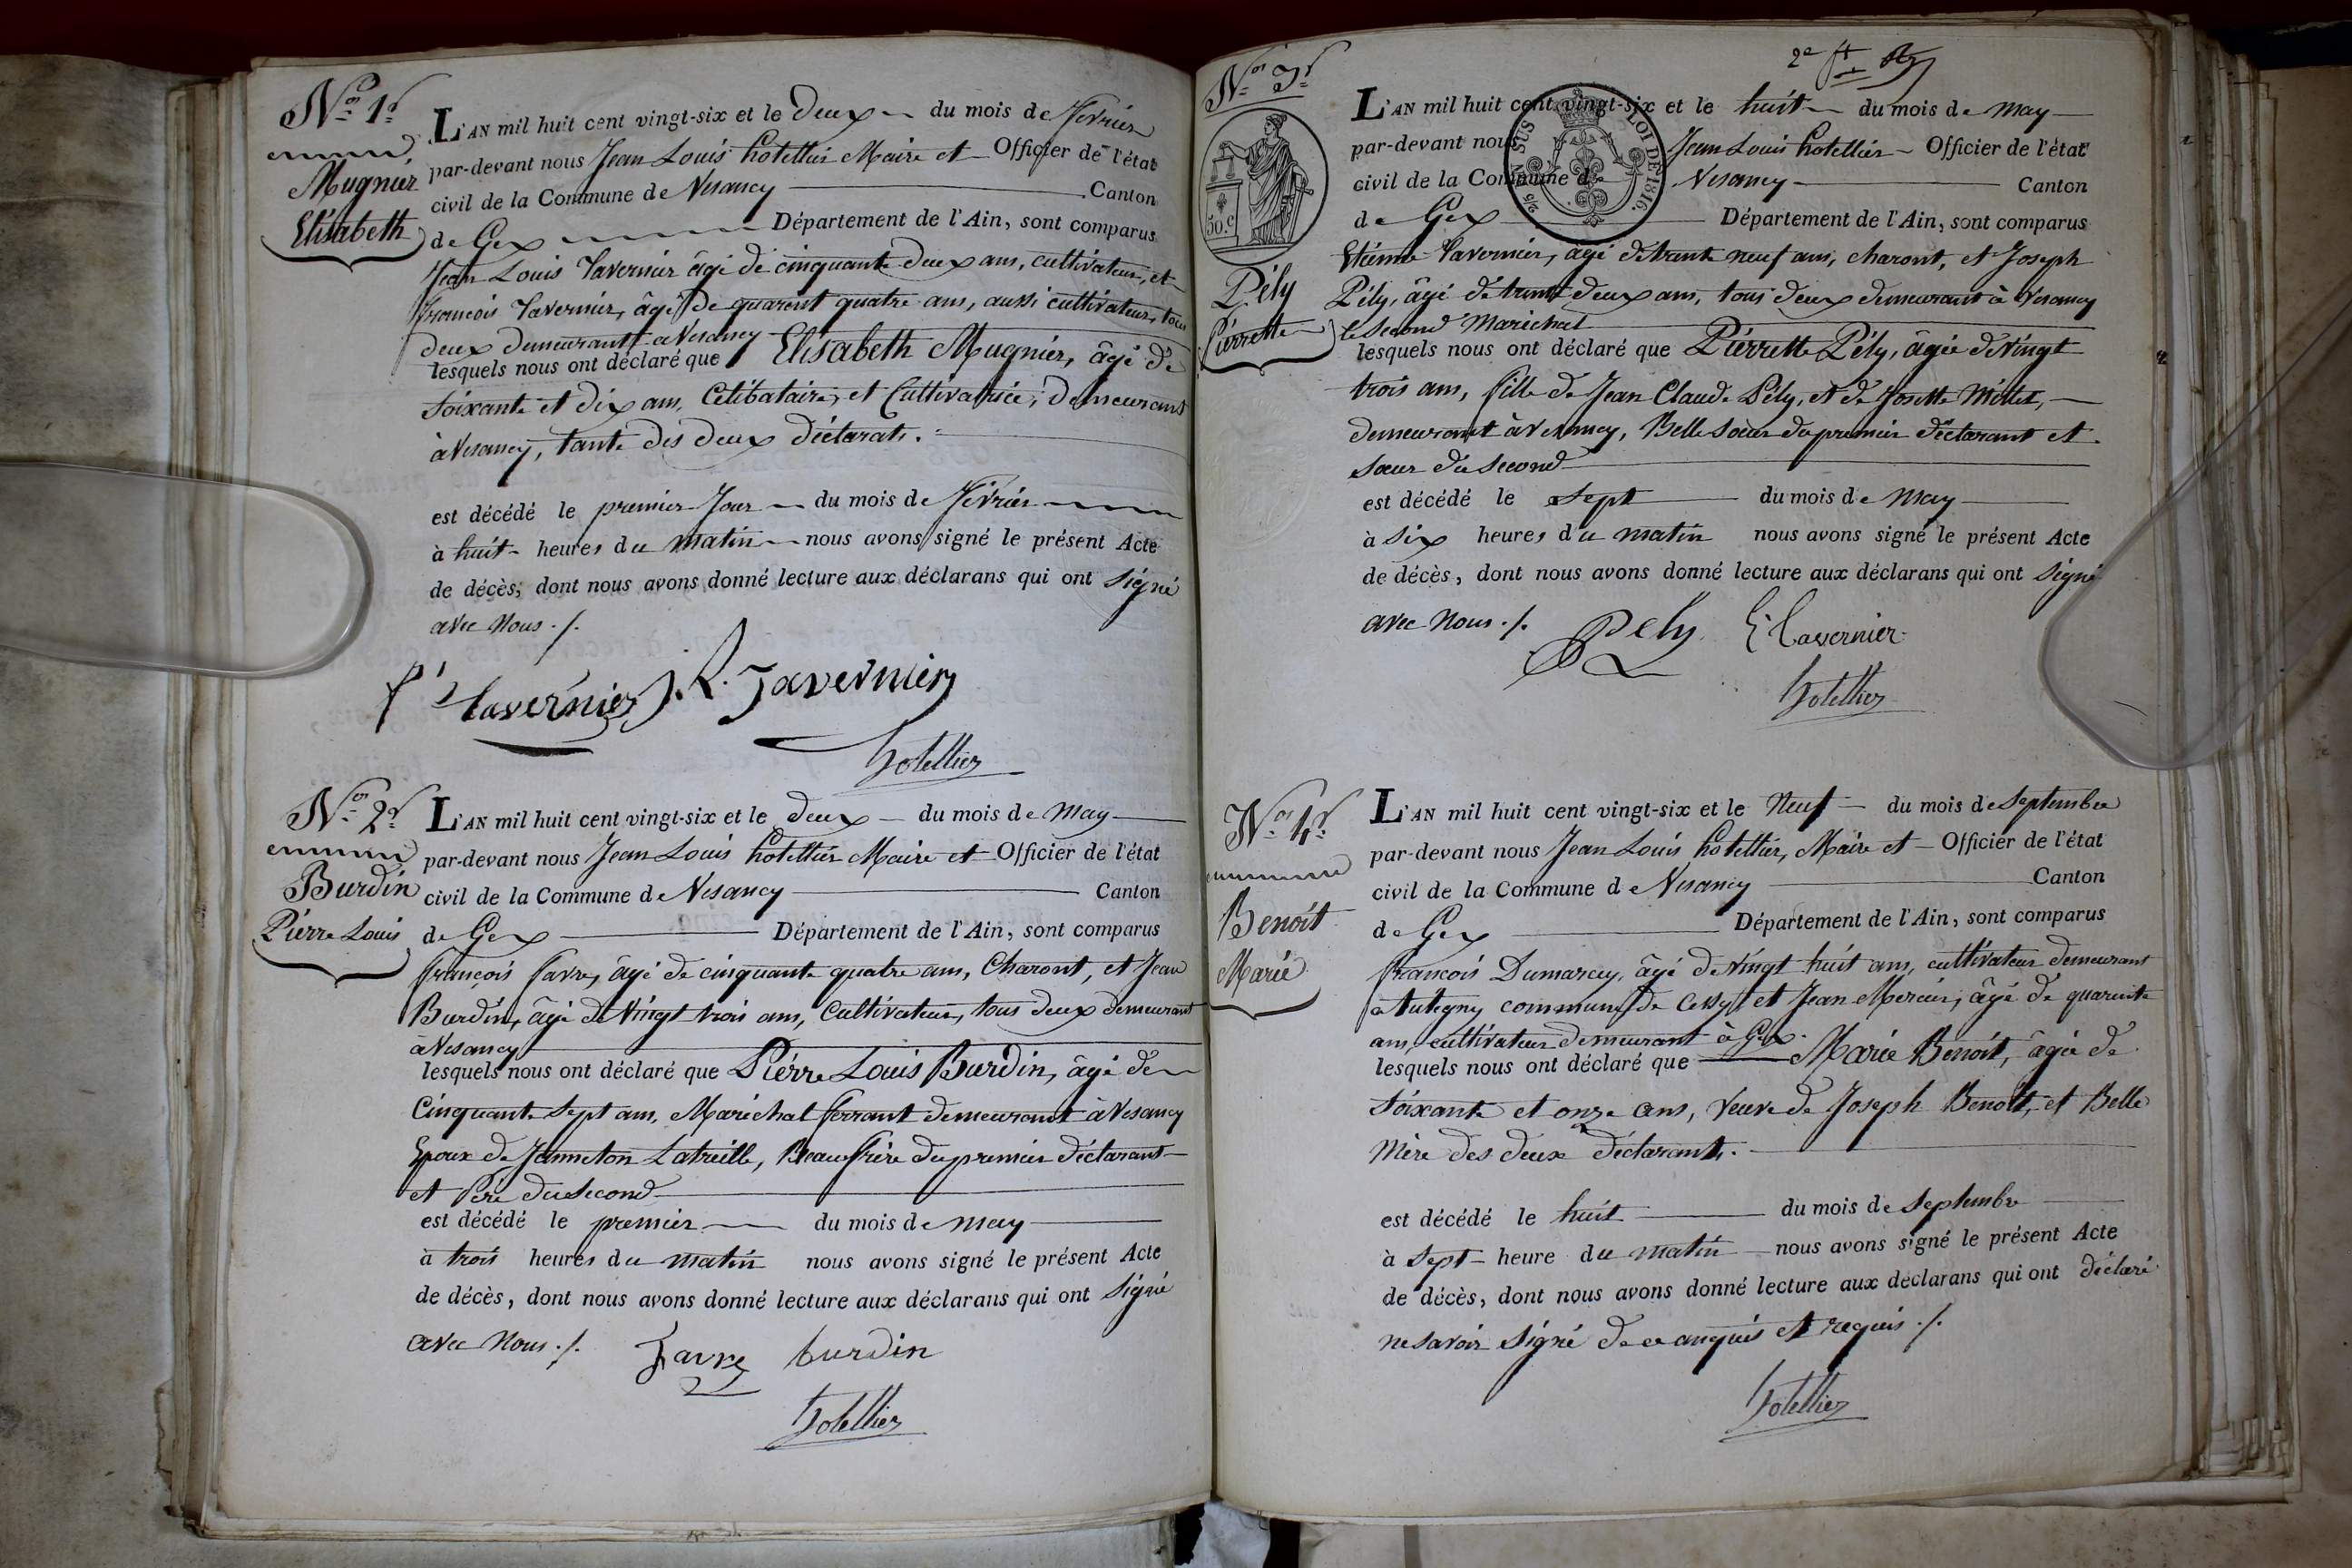 N.º 1.r
Mugnier
Elisabeth
L'AN mil huit cent vingt-six et le deux du mois de février
par-devant nous Jean Louis hotellier Maire et Officier de l'état
civil de la Commune de Vesancy Canton
de Gex Département de l'Ain, sont comparus
Jean Louis Tavernier âgé de cinquante deux ans, cultivateur, et
françois Tavernier, âgé de quarent quatre ans, aussi cultivateur, tous
deux demeurant à Vesancy
lesquels nous ont déclaré que Elisabeth Mugnier, âgé de
soixante et dix ans, Célibataire, et Cultivatrice, demeurant
à Vesancy, tante des deux déclarats.
est décédé le premier Jour du mois de février
à huit heures du matin nous avons signé le présent Acte
de décès; dont nous avons donné lecture aux déclarans qui ont signé
avec Nous ./.
f' tavernier J. L. Tavernier
hotellier
N.º 2.r
Burdin
Pierre Louis
L'AN mil huit cent vingt-six et le deux du mois de may
par-devant nous Jean Louis hotellier Maire et Officier de l'état
civil de la Commune de Vesancy Canton
de Gex Département de l'Ain, sont comparus
françois favre, âgé de cinquante quatre ans, Charont, et Jean
Burdin, âgé de Vingt trois ans, Cultivateur, tous deux demeurant
à Vesancy
lesquels nous ont déclaré que Pierre Louis Burdin, âgé de
Cinquante sept ans, Maréchal ferrant demeurant à Vesancy
Epoux de Jenneton Latreille, Beau frère du premier déclarant
et Père du second
est décédé le premier du mois de may
à trois heures du matin nous avons signé le présent Acte
de décès, dont nous avons donné lecture aux déclarans qui ont signé
avec Nous ./.
favre burdin
hotellier
2e ft
N.º 3.r
50.c
LOI DE 1816.
Pély
Pierrette
L'AN mil huit cent vingt-six et le huit du mois de may
par-devant nous Jean Louis hotellier Officier de l'état
civil de la Commune de Vesancy Canton
de Gex Département de l'Ain, sont comparus
Etienne Tavernier, âgé de trente neuf ans, charont, et Joseph
Pély, âgé de trente deux ans, tous deux demeurant à Vesancy
le second Maréchal
lesquels nous ont déclaré que Pierrette Pély, âgée de Vingt
trois ans, fille de Jean Claude Pély, et de Josette Millet,
demeurant à Vesancy, Belle sœur du premier déclarant et
sœur du second
est décédé le sept du mois de may
à six heures du matin nous avons signé le présent Acte
de décès, dont nous avons donné lecture aux déclarans qui ont signé
avec Nous ./.
Pely E tavernier
hotellier
N.º 4.r
Benoit
Marie
L'AN mil huit cent vingt-six et le Neuf du mois de Septembre
par-devant nous Jean Louis hotellier, Maire et Officier de l'état
civil de la Commune de Vesancy Canton
de Gex Département de l'Ain, sont comparus
françois Dumarcey, âgé de Vingt huit ans, cultivateur demeurant
à tutegny commune de Cessy, et Jean Mercier, âgé de quarente
ans, cultivateur demeurant à Gex.
lesquels nous ont déclaré que Marie Benoit, âgée de
soixante et onze ans, Veuve de Joseph Benoit, et Belle
Mère des deux déclarants.
est décédé le huit du mois de septembre
à sept heure du matin nous avons signé le présent Acte
de décès, dont nous avons donné lecture aux déclarans qui ont déclaré
ne savoir signé de ce anquis et requis ./.
hotellier